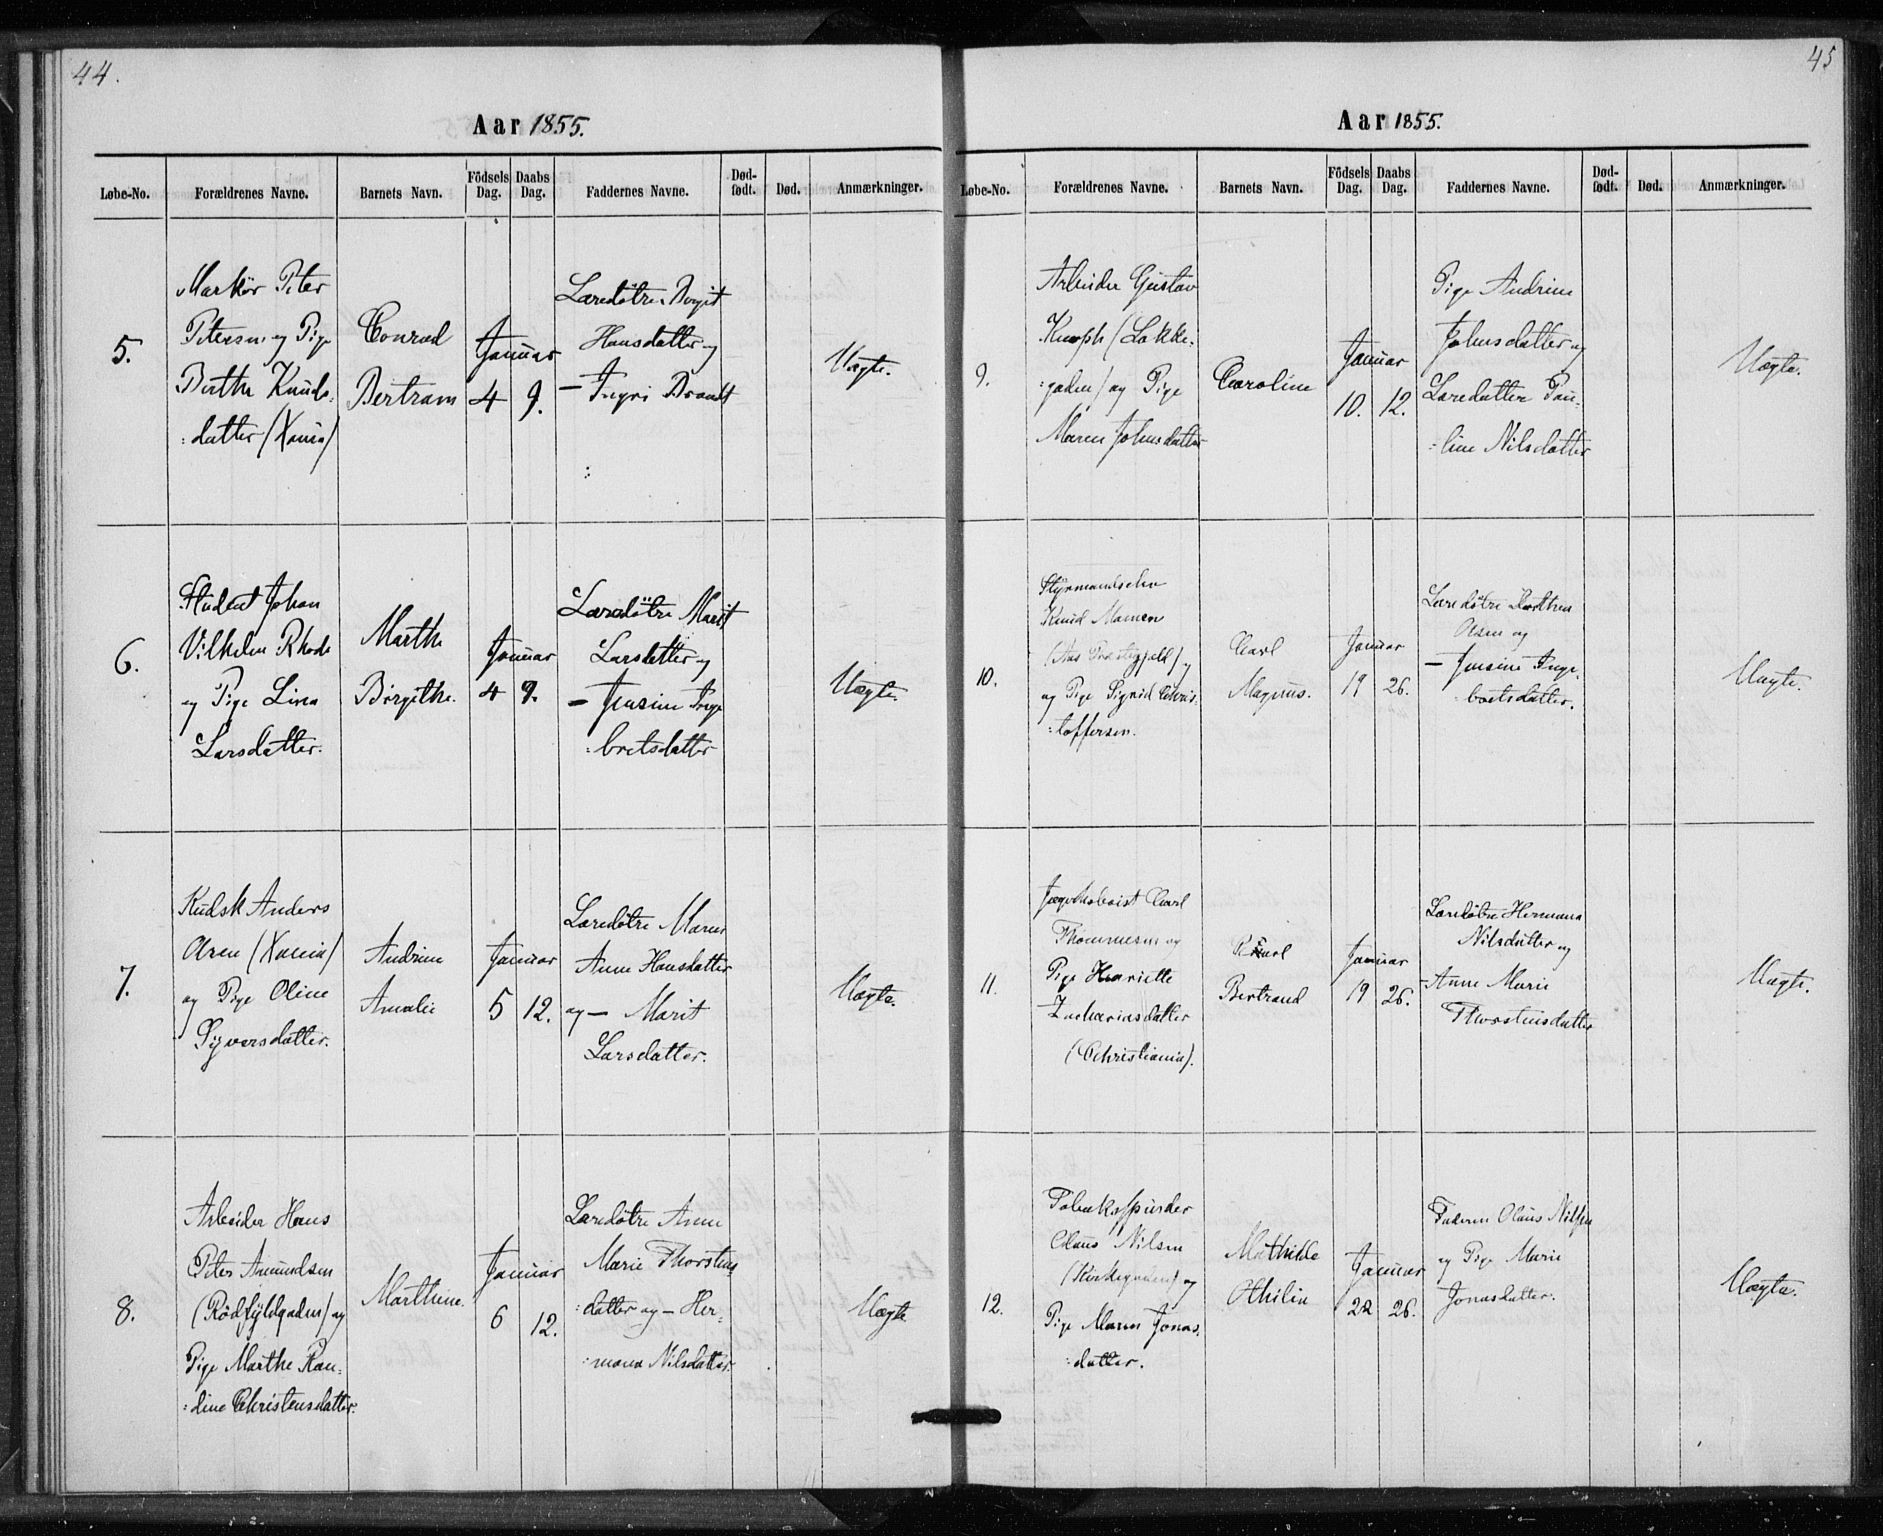 44.
Aar 1855.
Løbe-No. Forældrenes Navne. Barnets Navn. Födsels Dag. Daabs Dag. Faddernes Navne. Død-født. Død. Anmærkninger.
5.
Markør Peter
Petersen og Pige
Berthe Knuds-
:datter (Xania)
Conrad
Bertram
Januar
4 9.
Læredøtre Birgit
Hansdatter og
— Ingri Brandt
Uægte.
6.
Student Johan
Vilhelm Rhode
og Pige Lina
Larsdatter.
Marthe
Birgithe.
Januar
4 9.
Læredøtre Marit
Larsdatter og
— Jensine Inge
:bretsdatter
Uægte.
7.
Kudsk Anders
Olsen (Xania)
og Pige Oline
Sigversdatter.
Andrine
Amalie
Januar
5 12.
Læredøtre Maren
Anne Hansdatter
og — Marit
Larsdatter.
Uægte.
8.
Arbeider Hans
Peter Amundsen
(Rødfyldgaden) og
Pige Marthe Ran-
:dine Christensdatter.
Marthine.
Januar
6 12.
Læredøtre Anne
Marie Thorstens
:datter og — Her-
:mana Nilsdatter.
Uægte
45
Aar 1855.
Løbe-No. Forældrenes Navne. Barnets Navn. Födsels Dag. Daabs Dag. Faddernes Navne. Død-født. Død. Anmærkninger.
9.
Arbeider Gustav
Knoph (Lakke-
:gaden) og Pige
Maren Johnsdatter
Caroline
Januar
10. 12.
Pige Andrine
Johnsdatter og
Læredatter Pau-
:line Nilsdatter
Uægte.
10.
Styrmandselev
Knud Mamen
(Aas Præstegjeld) og
og Pige Sigrid Chris-
:toffersen.
Carl
Magnus.
Januar
19 26.
Læredøtre Dorthea
Olsen og
— Jensine Inge-
bretsdatter.
Uægte.
11.
Jægerhoboist Carl
Thommesen og
Pige Henriette
Zachariasdatter
(Christiania).
Karl
Bertrand
Januar
19 26.
Læredøtre Hermana
Nilsdatter og
— Anne Marie
Thorstensdatter
Uægte.
12.
Tobaksspinder
Olaus Nilsen
(Kirkegaden) og
Pige Maren Jonas-
:datter.
Mathilde
Othilie
Januar
22 26.
Faderen Olaus Nilsen
og Pige Marie
Jonasdatter.
Uægte.